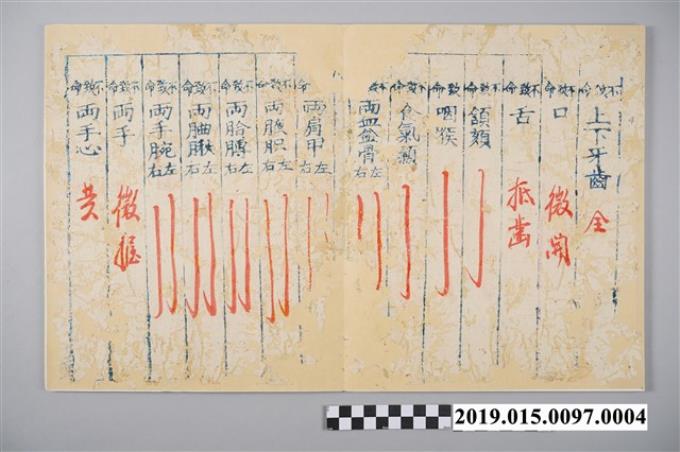 不致命 上下牙齒 全
不致命 口 微開
不致命 舌 抵齒
不致命 頷頦
致命 咽喉
致命 食氣顙
不致 兩血盆骨 左右
兩肩甲 左右
不致命 兩腋胑 左右
不致命 兩胎膊 左右
不致命 兩䏔脷 左右
不致命 兩手腕 左右
不致命 兩手 微握
不致命 兩手心
2019.015.0097.0004